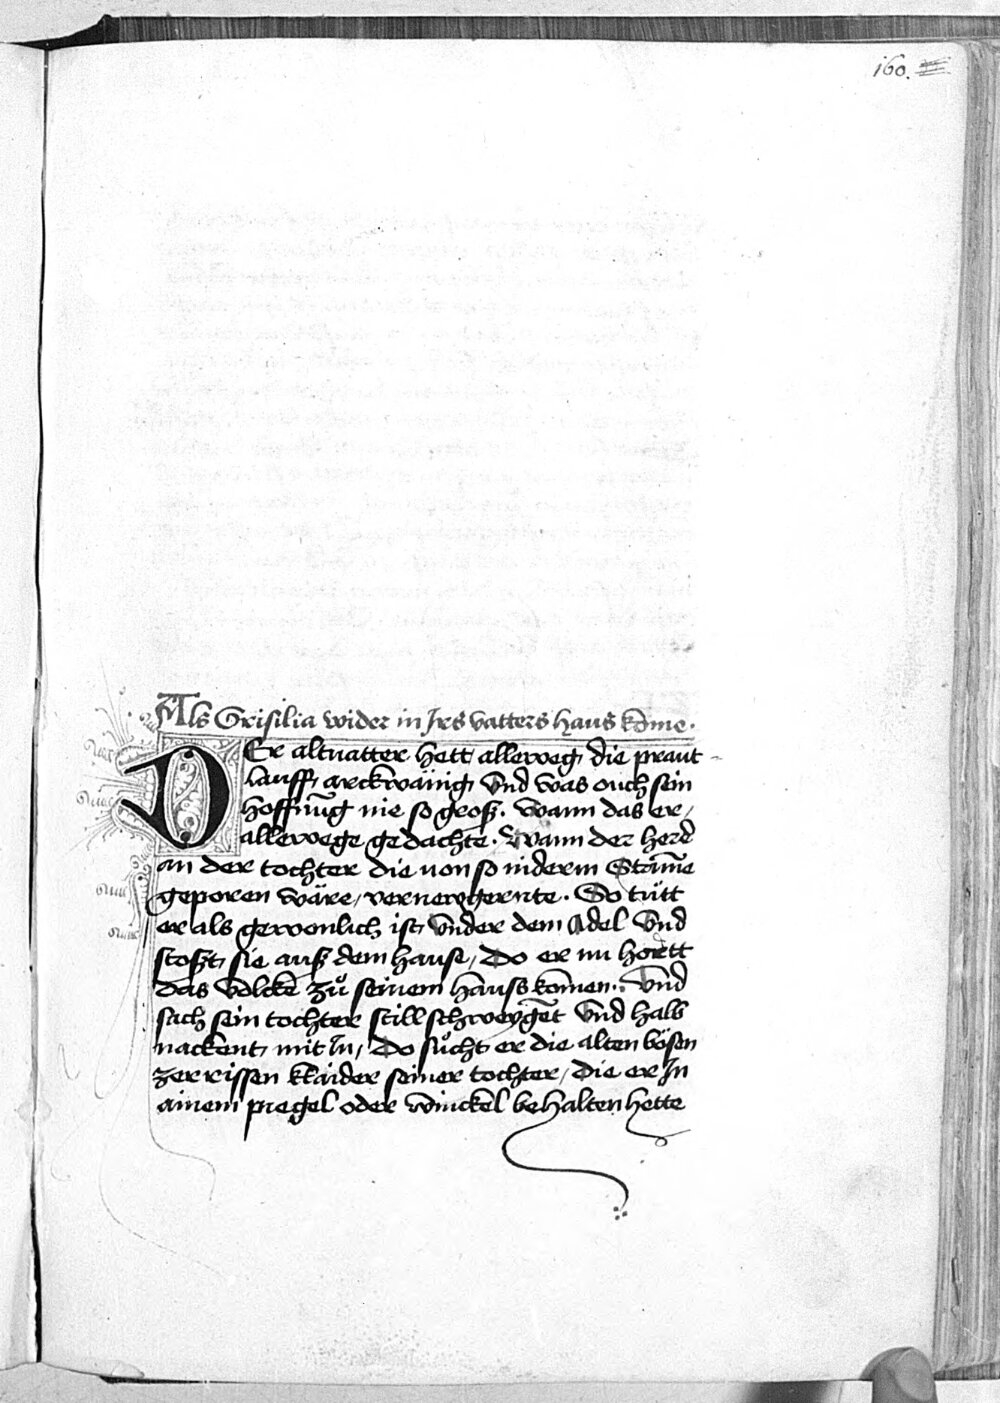 160.
Als Grisilia wider in Jres vatters haus kome.
Er altuatter hett allerweg die praut-
lauff arckwänig Vnd was ouch sein
hoffnūg nie so groß. wann das er/
allerwege gedachte. Wann der here
an der tochter die von so niderm Stāme
geporen wäre/ verneygernte. So tütt
er als gewonlich ist vnder dem Adel Vnd
stoßt sie auß dem hause/ Do er nu hortt
das Volcke zů seinem hauss komen. Vnd
sach sein tochter still schweygēt Vnd halb
nackent mit In/ Do sůcht er die alten bösen
zerrissen klaider seiner tochter/ Die er In
ainem pregel oder winckel behalten hette